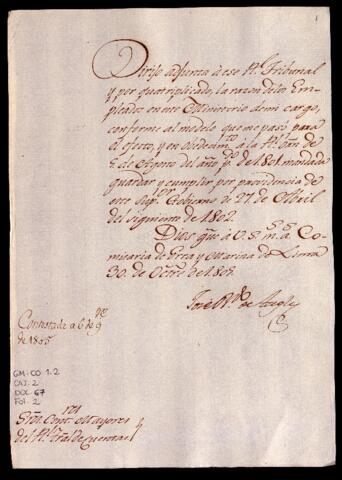 1
Dirijo adjunta à ese Rl. Tribunal
y por quatriplicado, la razon de los Em-
pleados en este Ministerio de mi cargo,
conforme al modelo que me pasó para
el efecto, y en obedecimto. à la Rl. Orn. de
de Agosto del año po. de 1801 mandada
guardar y cumplir por providencia de
este Supor. Gobierno de 27 de Abril
del siguiente de 1802.
Dios gue. à V.S. ms. as. Co-
misaria de Grra y Marina de Lima
30 de Octre. de 180
Contextada à 6 de
de 1805
GM-CO 1.2
CAJ. 2
DOC. 67
Fol. 2
Sres. Contres. Mayores
del Rl. Tral. de Cuentas